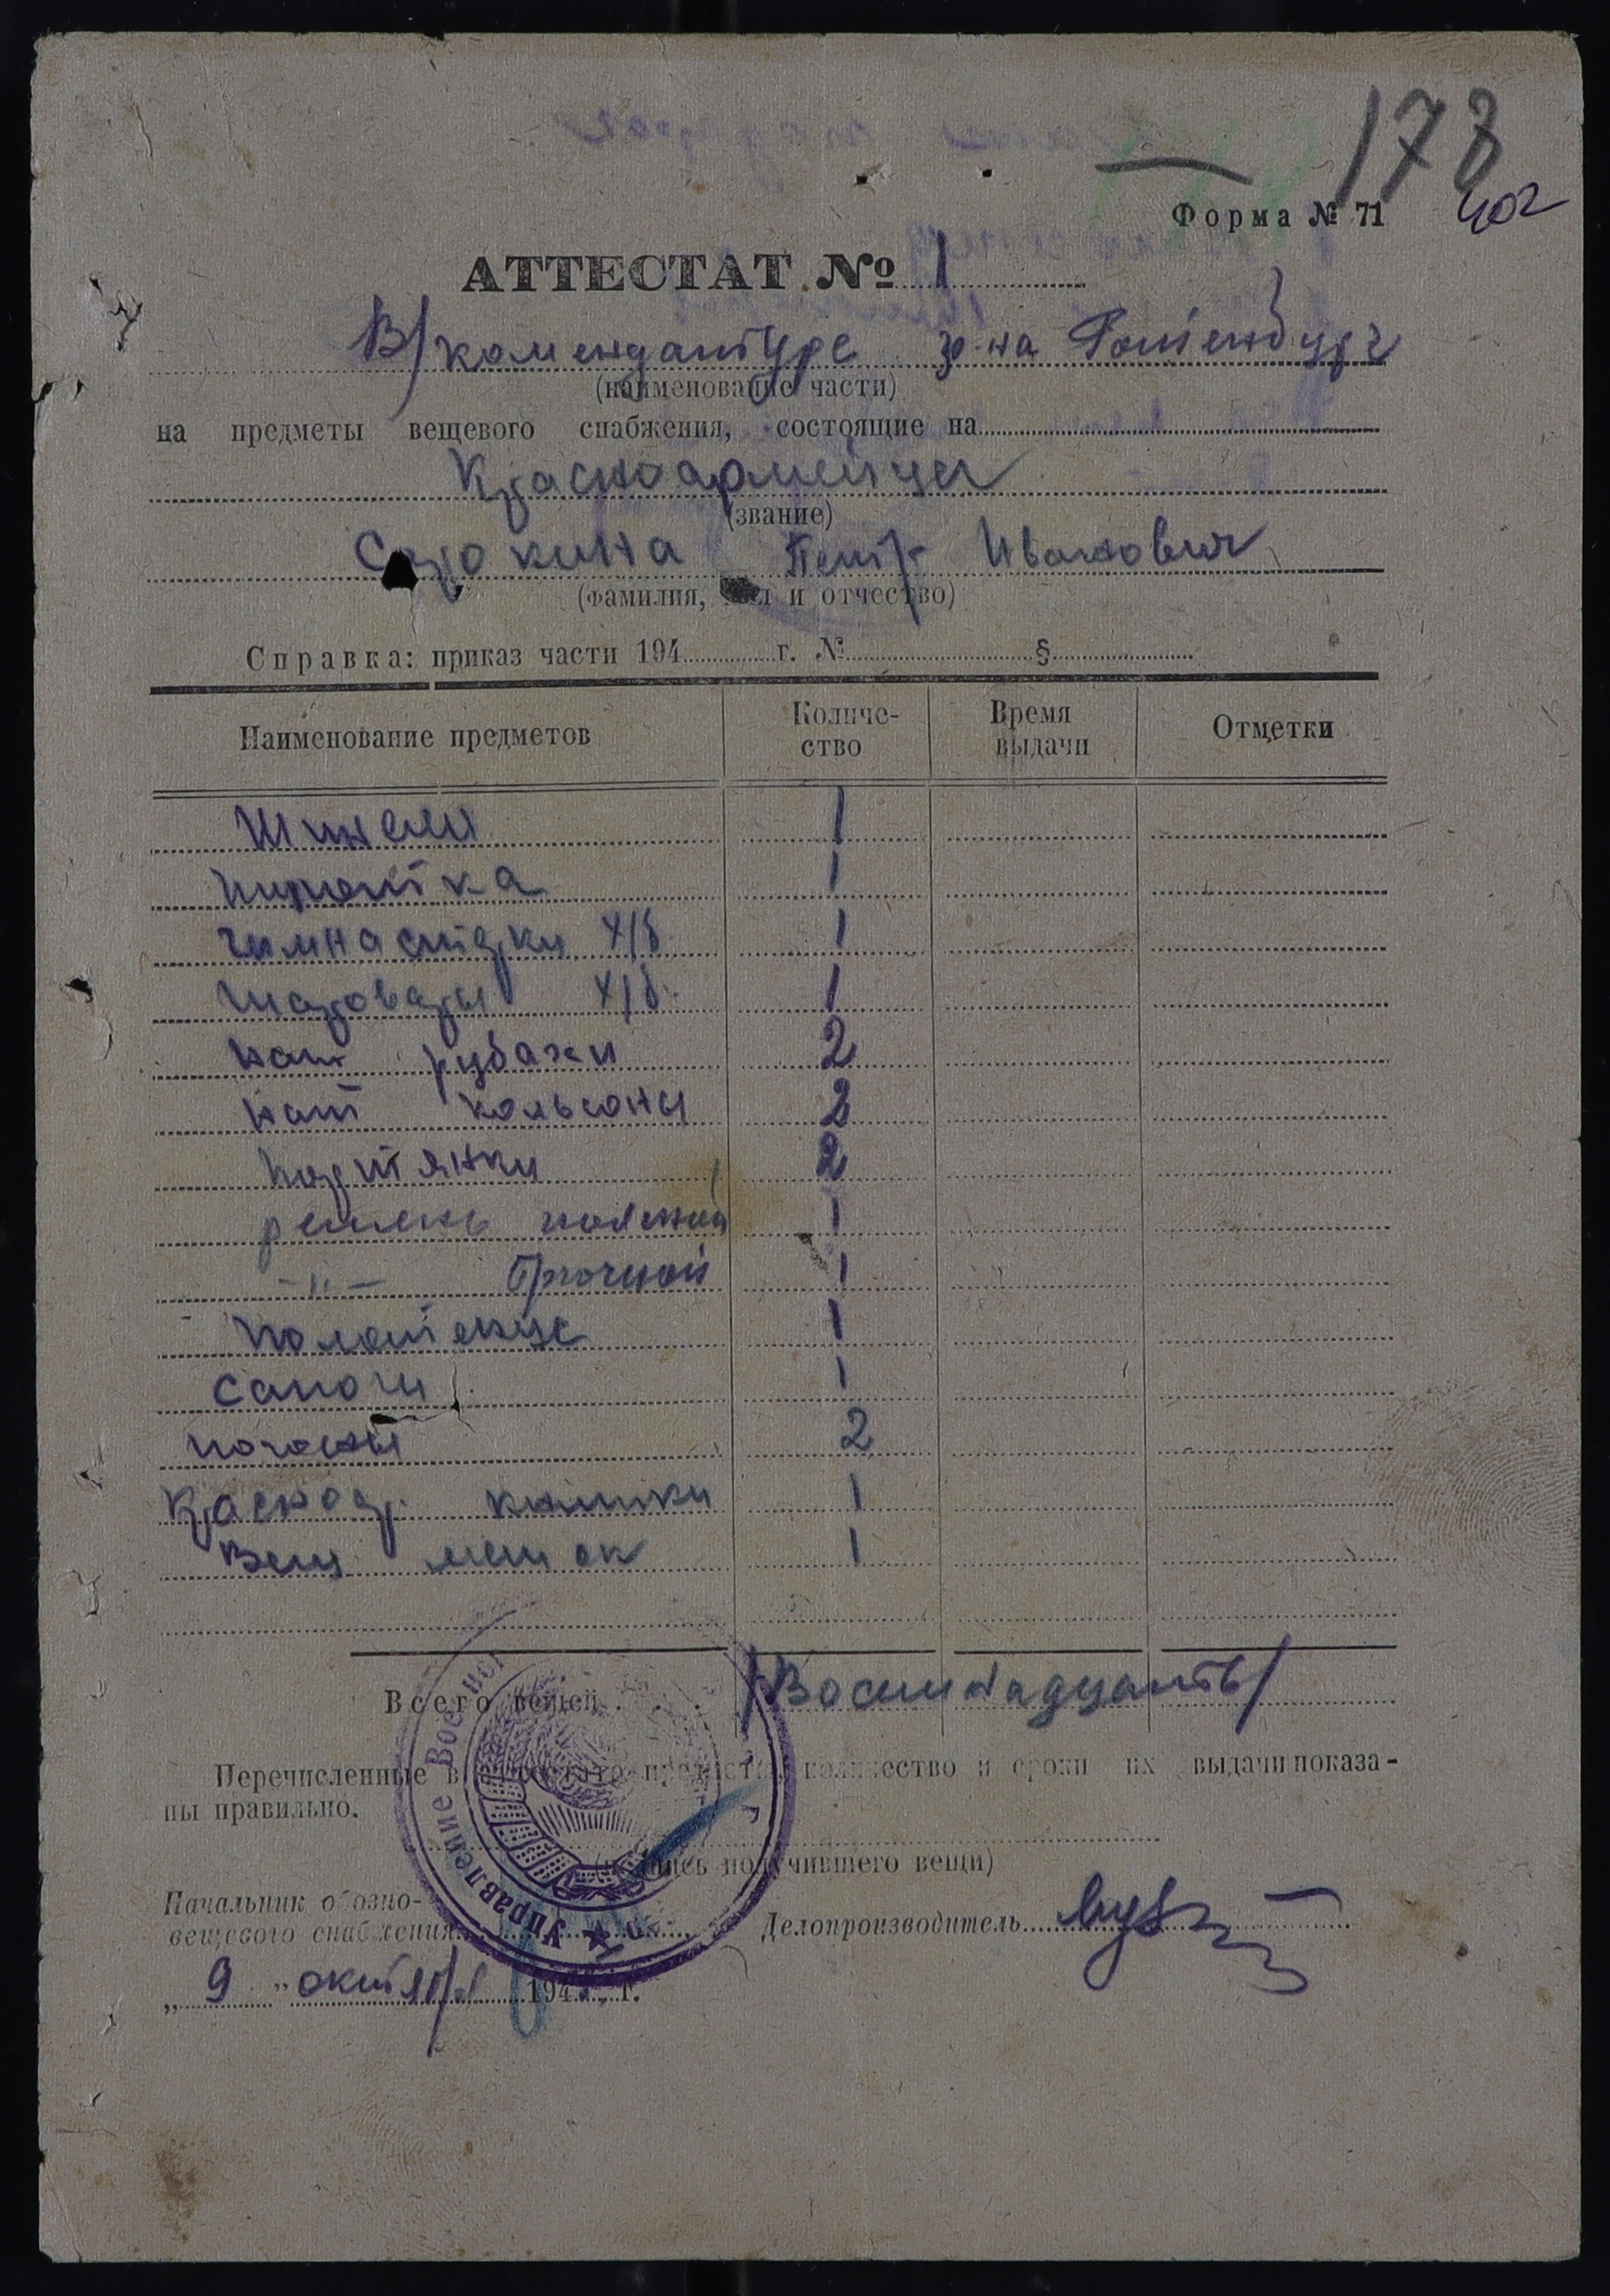 178
402
Форма № 71
АТТЕСТАТ № 1
В/комендантуре р-на Ротенбург
(наименование части)
на предметы вещевого снабжения, состоящие на
Красноармейца
(звание)
Сорокина Петр Иванович
(фамилия, имя и отчество)
Справка: приказ части 194 г. № §
Наименование предметов Количе-ство Время выдачи Отметки
Шинели 1
пилотка 1
гимнастерки х/б 1
шаровары х/б 1
нат рубахи 2
нат кальсоны 2
портянки 2
ремень поясной 1
-"- брючной 1
полотенце 1
сапоги 1
погоны 2
Красноар. книжки 1
Вещ мешок 1
Всего вещей /Восемнадцать/
Перечисленные в аттестате предметы, количество и сроки их выдачи показа-
ны правильно.
(подпись получившего вещи)
Начальник обозно-
вещевого снабжения Делопроизводитель
„ 9 " октября 194 г.
Управление Воен